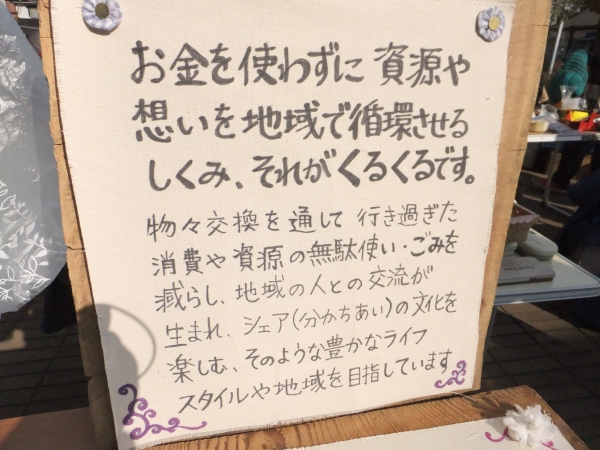 お金を使わずに資源や
想いを地域で循環させる
しくみ、それがくるくるです。
物々交換を通して行き過ぎた
消費や資源の無駄使い・ごみを
減らし、地域の人との交流が
生まれ、シェア(分かちあい)の文化を
楽しむ、そのような豊かなライフ
スタイルや地域を目指しています